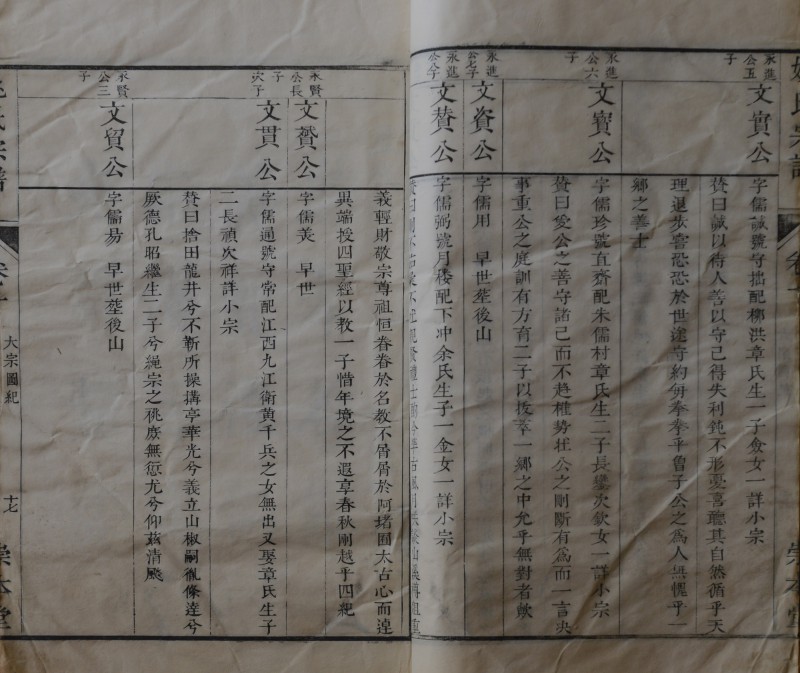 永進公五子
文實公
字儒誠號守拙配柳洪章氏生一子僉女一詳小宗
贊曰誠以待人善以守己得失利鈍不形憂喜聽其自然循乎天
理退步喜恐恐於世途守約拳拳乎魯子公之為人無愧乎一
鄉之善士
永進公六子
文寶公
字儒珍號直齋配朱儒村章氏生二子長鑾次欽女一詳小宗
贊曰愛公之善守諸己而不趨權勢壯公之剛斷有為而一言決
事重公之庭訓有方育二子以拔萃一鄉之中允乎無對者歟
永進公七子
文資公
字儒用 早世塟後山
永進公八子
文贊公
字儒弼號月樓配下冲余氏生子一金女一詳小宗
義輕財敬宗尊祖恒眷眷於名教不屑屑於阿堵囿太古心而遑
異端授四聖經以教一子惜年境之不遐享春秋剛越乎四紀
永賢公長子
文贇公
字儒美 早世
次子
文貫公
字儒通號守常配江西九江衛黃千兵之女無出又娶章氏生子
二長禎次祥詳小宗
贊曰捨田龍井兮不靳所操搆亭華光兮義立山椒嗣胤條達兮
厥德孔昭繼生二子兮繩宗之祧庶無愆尤兮仰茲清飈
永賢公三子
文貿公
字儒易 早世塟後山
氏宗譜
大宗圖紀
十七
崇本堂